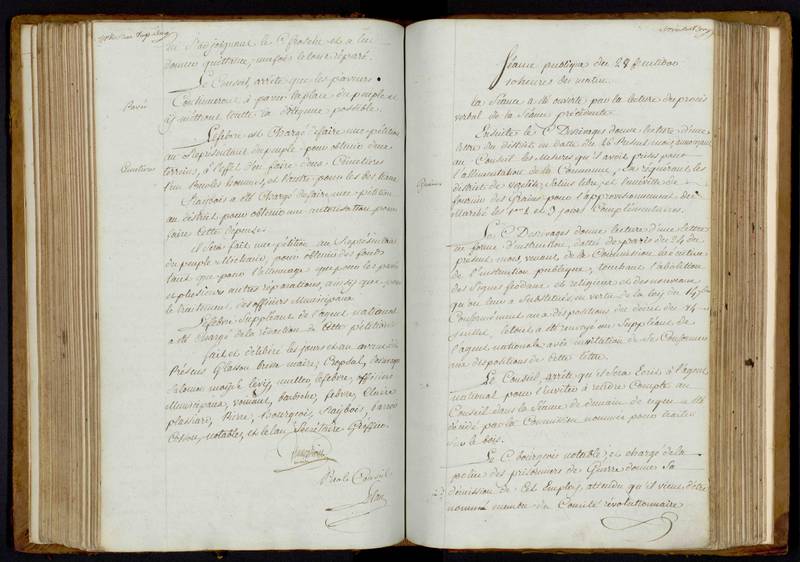 Le Conseil, arrete que les paveurs
Continueront a paver la place du peuple et
y mettront toutte la diligence possible.
Pavé
Lefebvre est Chargé de faire une pétition
au Représentant du peuple pour obtenir deux
terrains, à l'effet d'en faire deux Cimetières
Cimetières
l'un pour les hommes, et l'autre pour les
Naybois a été Chargé de faire une pétition
au district pour obtenir une autorisation pour
faire Cette depense.
il Sera fait une pétition au Représentant
du peuple Michaud, pour obtenir des fonds
tant que pour l'allumage que pour les pavés
et plusieurs autres réparations, ainsy que pour
le traitement des officiers Municipaux
Lefebvre Suppléant de l'agent national
a été chargé de la rédaction de Cette pétition
fait et délibéré les jours et an avant dit
Présens Glasson maire; Cropsal,
Salomon moyse levy, mutter, lefebvre, officiers
Municipaux, voinant, barboche, febvre, Claire
plassiart, Pierre, Bourgeois, Naybois,
notables, et le lan, Secrétaire Greffier.
Par le Conseil
Lan
Séance publique du 28 fructidor
10 heures du matin
La Séance a été ouverte par la lecture du procès
verbal de la Séance précédente.
Ensuite le C. Desrivages donne lecture d'une
lettre du district en datte du 26 présent mois, annonçant
au Conseil les mesures qu'il avoit prises pour
l'alimentation de la Commune, en requérant les
district de Salins libre, et
fournir des Grains pour l'approvisionnement des
Marché les 1er et 3 jours Complémentaires.
Grains
Le C. Desrivages donne lecture d'une lettre
en forme d'instruction, dattée de paris du 24 du
présent mois, venant, de la Commission executive
de l'instruction publique, touchant l'abolition
des Signes féodaux et religieux et des nouveaux
qu'on leur a Substitués, en vertu de la loy du 14 7bre
Conformément aux dispositions du décret du 14
juillet lettre a été renvoyé au Suppléant de
l'agent national avec invitation de se Conformer
aux dispositions de Cette lettre.
Le Conseil, arrête qu'il Sera Ecris à l'agent
national pour l'inviter à rendre Compte au
Conseil dans la Séance de demain de ce qui a été
décidé par la Commission nommée pour traiter
sur le bois.
Le C. bourgeois notable, et chargé de la
police des prisonniers de Guerre donne Sa
démission de Cet Emploi, attendu qu'il vient d'être
nommé membre du Comité révolutionnaire